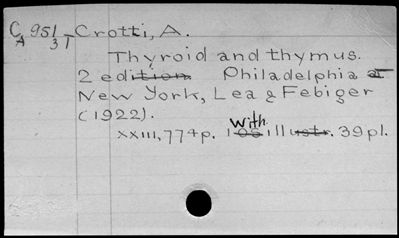 CA 951 31 Crotti, A.
Thyroid and thymus.
2 edition Philadelphia et
New York, Lea & Febiger
(1922).
With
xxiii, 774p. 105 illustr. 39pl.